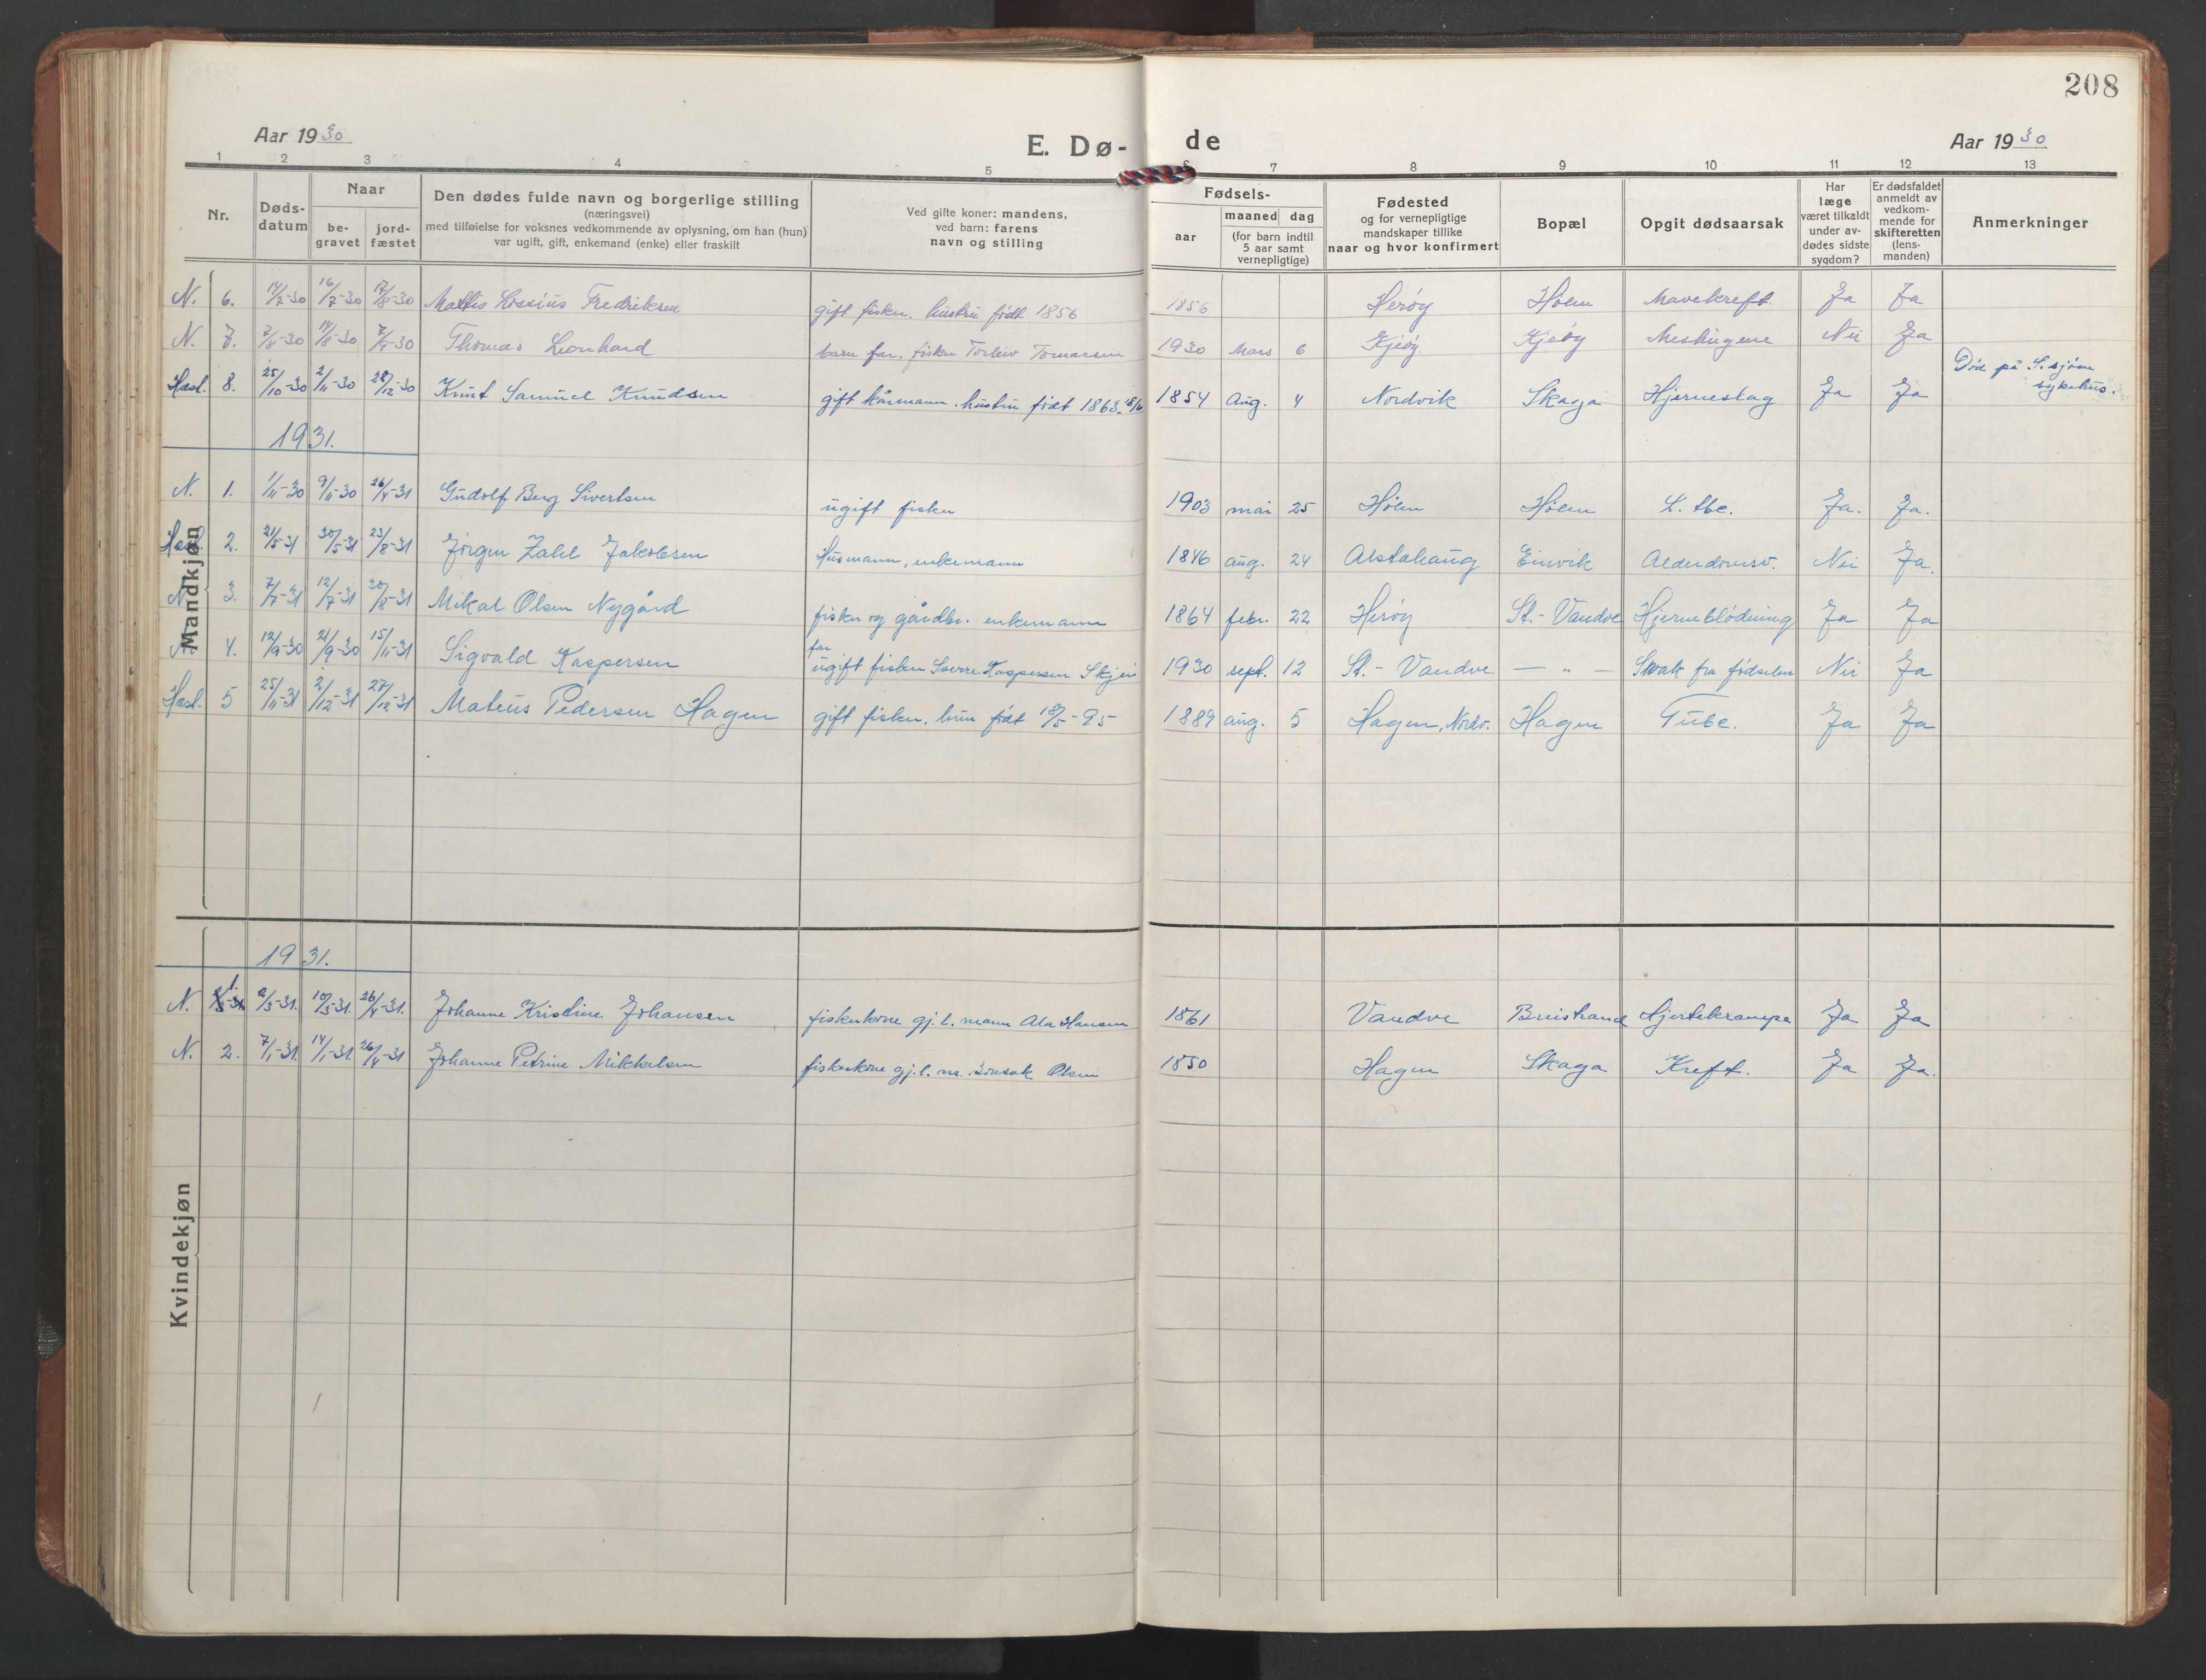 208
Aar 1930
E. Dø-
de
Aar 1930
1 2 3 4 5 6 7 8 9 10 11 12 13
Nr.
Døds-
datum
Naar
be-
gravet
jord-
fæstet
Den dødes fulde navn og borgerlige stilling
(næringsvei)
med tilføielse for voksnes vedkommende av oplysning, om han (hun)
var ugift, gift, enkemand (enke) eller fraskilt
Ved gifte koner: mandens,
ved barn: farens
navn og stilling
Fødsels-
aar
maaned dag
(for barn indtil
5 aar samt
vernepligtige)
Fødested
og for vernepligtige
mandskaper tillike
naar og hvor konfirmert
Bopæl
Opgit dødsaarsak
Har
læge
været tilkaldt
under av-
dødes sidste
sygdom?
Er dødsfaldet
anmeldt av
vedkom-
mende for
skifteretten
(lens-
manden)
Anmerkninger
Mandkjøn
N. 6. 16/7-30 17/8-30 Mattis Lossius Fredriksen gift fisker. hustru født 1856 1856 Herøy Holm Mavekreft. Ja Ja
N. 7. 14/8-30 7/9-30 Thomas Leonhard barn far. fisker Torleiv Tomassen 1930 Mars 6 Kjeøy Kjeøy Meslingene Nei Ja
Hasl. 8. 25/10-30 2/11-30 28/12-30 Knut Samuel Knudsen gift kårmann. hustru født 1863 1854 Aug. 4 Nordvik Skaga Hjerneslag Ja Ja Død på S.sjøen sykehus.
1931.
N. 1. 1/11-30 9/11-30 26/4-31 Gudolf Berg Sivertsen ugift fisker 1903 mai 25 Holm Holm L. tbc. Ja. Ja.
Hasl. 2. 21/5-31 30/5-31 23/8-31 Jørgen Zahl Jakobsen Husmann, enkemann 1846 aug. 24 Alstahaug Einvik Alderdomsv. Nei Ja.
N. 3. 7/7-31 12/7-31 30/8-31 Mikal Olsen Nygård fisker og gårdbr. enkemann 1864 febr. 22 Herøy St.- Vandve Hjerneblødning Ja Ja
N. 4. 12/9-30 21/9-30 15/11-31 Sigvald Kaspersen far ugift fisker Sverre Kaspersen 1930 sept. 12 St.- Vandve — „ — Svak fra fødselen Nei Ja
Hasl. 5 25/11-31 2/12-31 27/12-31 Mateus Pedersen Hagen gift fisker, hun født 18/5-95 1889 aug. 5 Hagen, Nordv. Hagen Tube. Ja Ja
Kvindekjøn
1931.
N. 1. 2/3-31. 10/3-31. 26/4-31. Johanne Kristine Johansen fiskerkone gj.l. mann Hansen 1861 Vandve Breistrand Hjertekrampe Ja Ja
N. 2. 7/1-31. 14/1-31. 26/4-31 Johanne Petrine Mikkelsen fiskerkone gj.l. m. Olsen 1850 Hagen Skaga Kreft. Ja Ja.